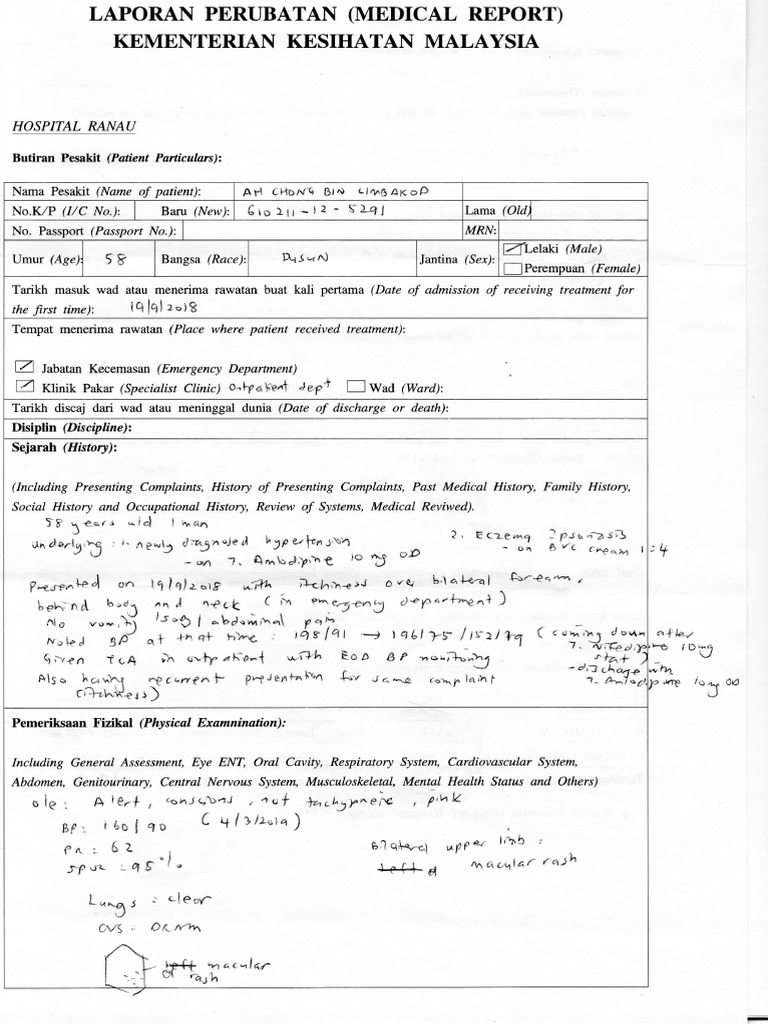 LAPORAN PERUBATAN (MEDICAL REPORT)
KEMENTERIAN KESIHATAN MALAYSIA
HOSPITAL RANAU
Butiran Pesakit (Patient Particulars):
Nama Pesakit (Name of patient): AH CHONG BIN LIMBAKOD
No.K/P (I/C No.): Baru (New): 610211-12-5291 Lama (Old)
No. Passport (Passport No.): MRN:
Umur (Age): 58 Bangsa (Race): DUSUN Jantina (Sex): Lelaki (Male)
Perempuan (Female)
Tarikh masuk wad atau menerima rawatan buat kali pertama (Date of admission of receiving treatment for
the first time): 19/9/2018
Tempat menerima rawatan (Place where patient received treatment):
Jabatan Kecemasan (Emergency Department)
Klinik Pakar (Specialist Clinic) Outpatient dept Wad (Ward):
Tarikh discaj dari wad atau meninggal dunia (Date of discharge or death):
Disiplin (Discipline):
Sejarah (History):
(Including Presenting Complaints, History of Presenting Complaints, Past Medical History, Family History,
Social History and Occupational History, Review of Systems, Medical Reviwed).
58 years old / man
underlying: 1. newly diagnosed hypertension 2. Eczema ?psoriasis
- on T. Amlodipine 10 mg OD - on BVC cream 1:4
Presented on 19/9/2018 with itchiness over bilateral forearm,
behind body and neck (in emergency department)
No vomity /SOB / abdominal pain
Noted BP at that time: 198/91 → 196/75/152/79 (coming down after
T. Nifedipine 10mg
stat)
Given TCA in outpatient with EOD BP monitoring - discharge with
Also having recurrent presentation for same complaint T. Amlodipine 10mg OD
(itchiness)
Pemeriksaan Fizikal (Physical Examnination):
Including General Assessment, Eye ENT, Oral Cavity, Respiratory System, Cardiovascular System,
Abdomen, Genitourinary, Central Nervous System, Musculoskeletal, Mental Health Status and Others)
o/e: Alert, conscious, not tachypneic, pink
BP: 160/90 (4/3/2019)
PR: 62 Bilateral upper limb:
SPO2: 98% left macular rash
Lungs: clear
CVS: DRNM
left macular
rash